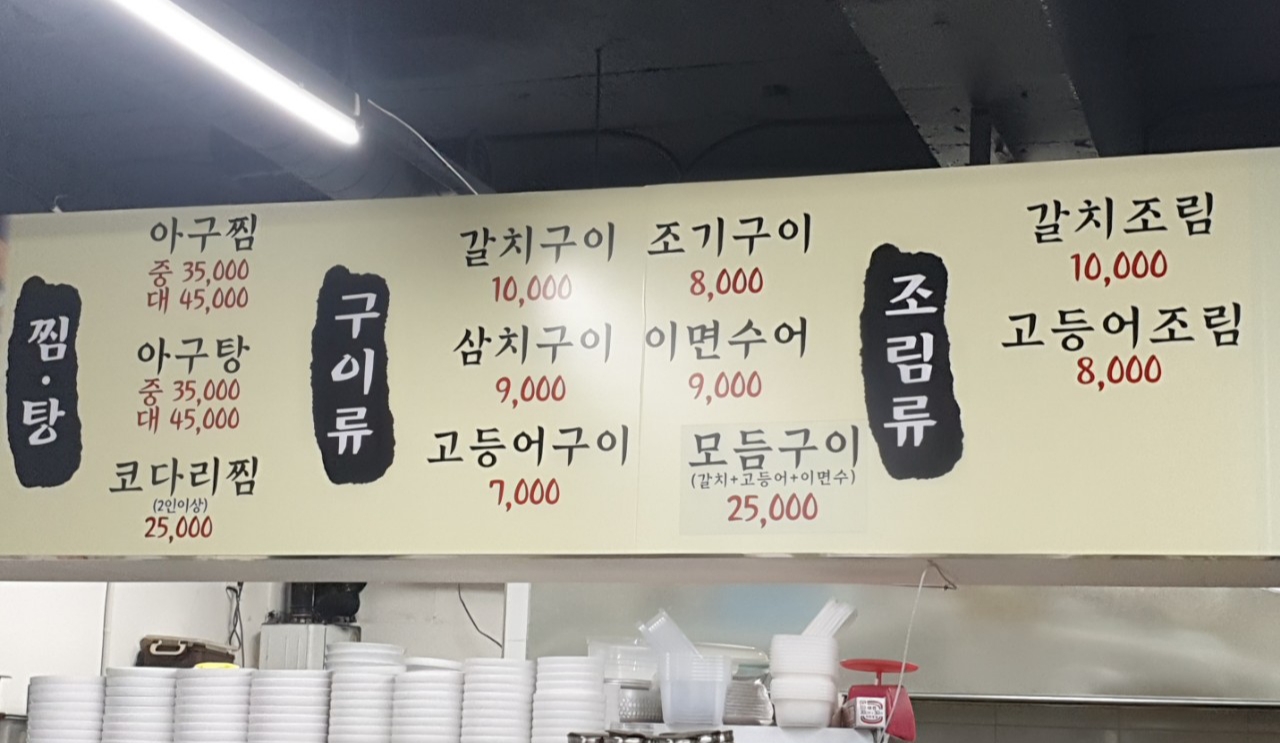 찜·탕
아구찜
중 35,000
대 45,000
아구탕
중 35,000
대 45,000
코다리찜
(2인이상)
25,000
구이류
갈치구이
10,000
삼치구이
9,000
고등어구이
7,000
조기구이
8,000
이면수어
9,000
모듬구이
(갈치+고등어+이면수)
25,000
조림류
갈치조림
10,000
고등어조림
8,000